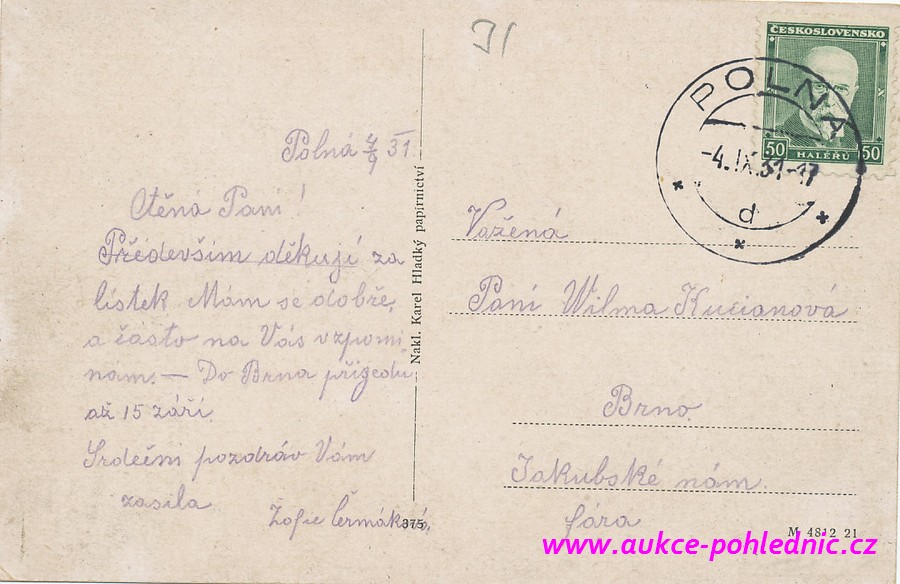 Polná 4/9 31.
Ctěná Paní!
Předevšim děkuji za
listek Mám se dobře,
a často na Vás vzpomi
nám. — Do Brna přijedu
až 15 září.
Srdečni pozdráv Vám
zasila
Žofie Čermáková,
Nakl. Karel Hladký papírnictví
375
ČESKOSLOVENSKO
50 HALÉRŮ 50
POLNÁ
-4.IX.31-17
d
Važená
Paní Wilma
Brno.
Jakubské nám.
fára
M 4812 21
www.aukce-pohlednic.cz